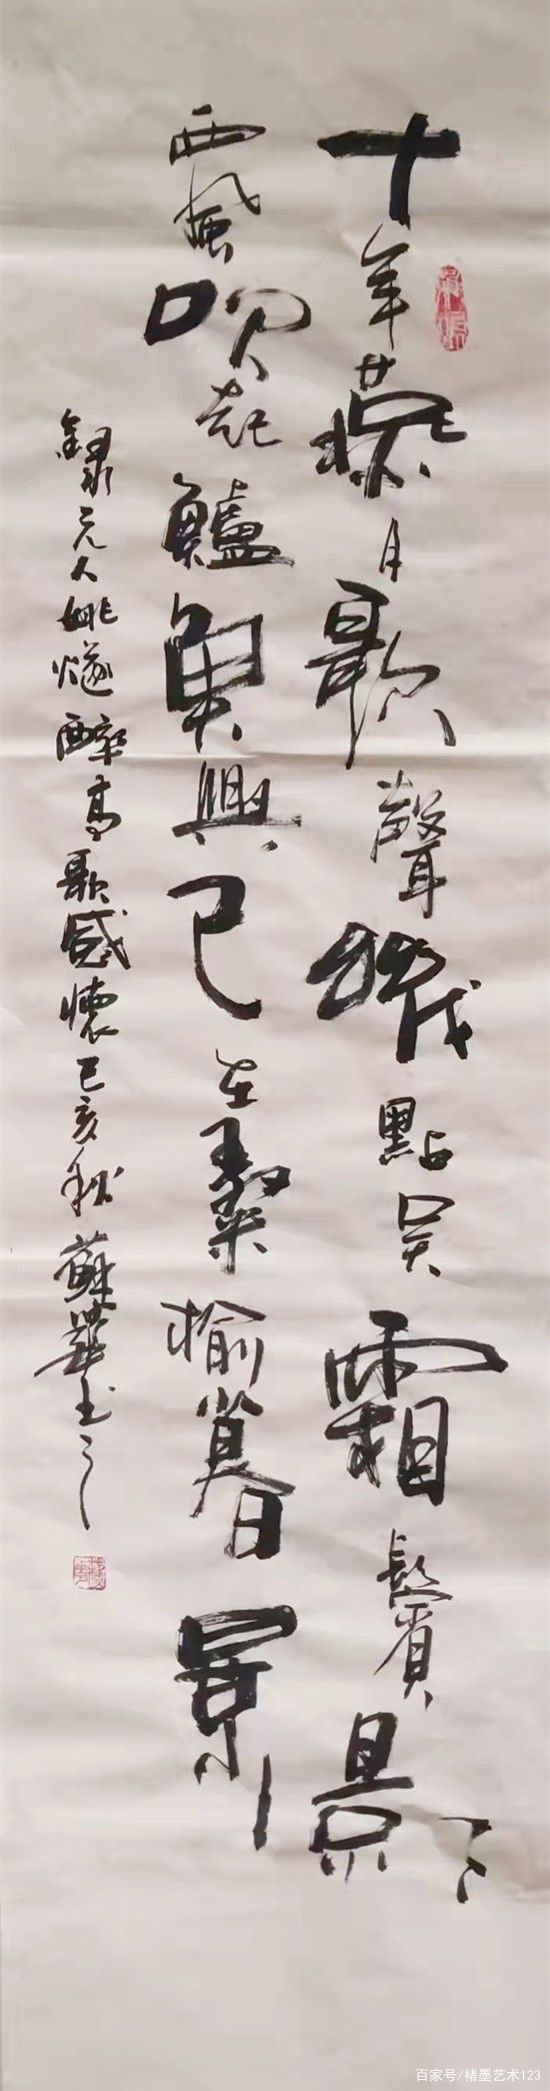 十年燕月歌聲幾點吳霜鬢影
西風吹起鱸魚興已在桑榆暮景
錄元人姚燧醉高歌感懷己亥秋蘇華書之
百家号/楮墨艺术123